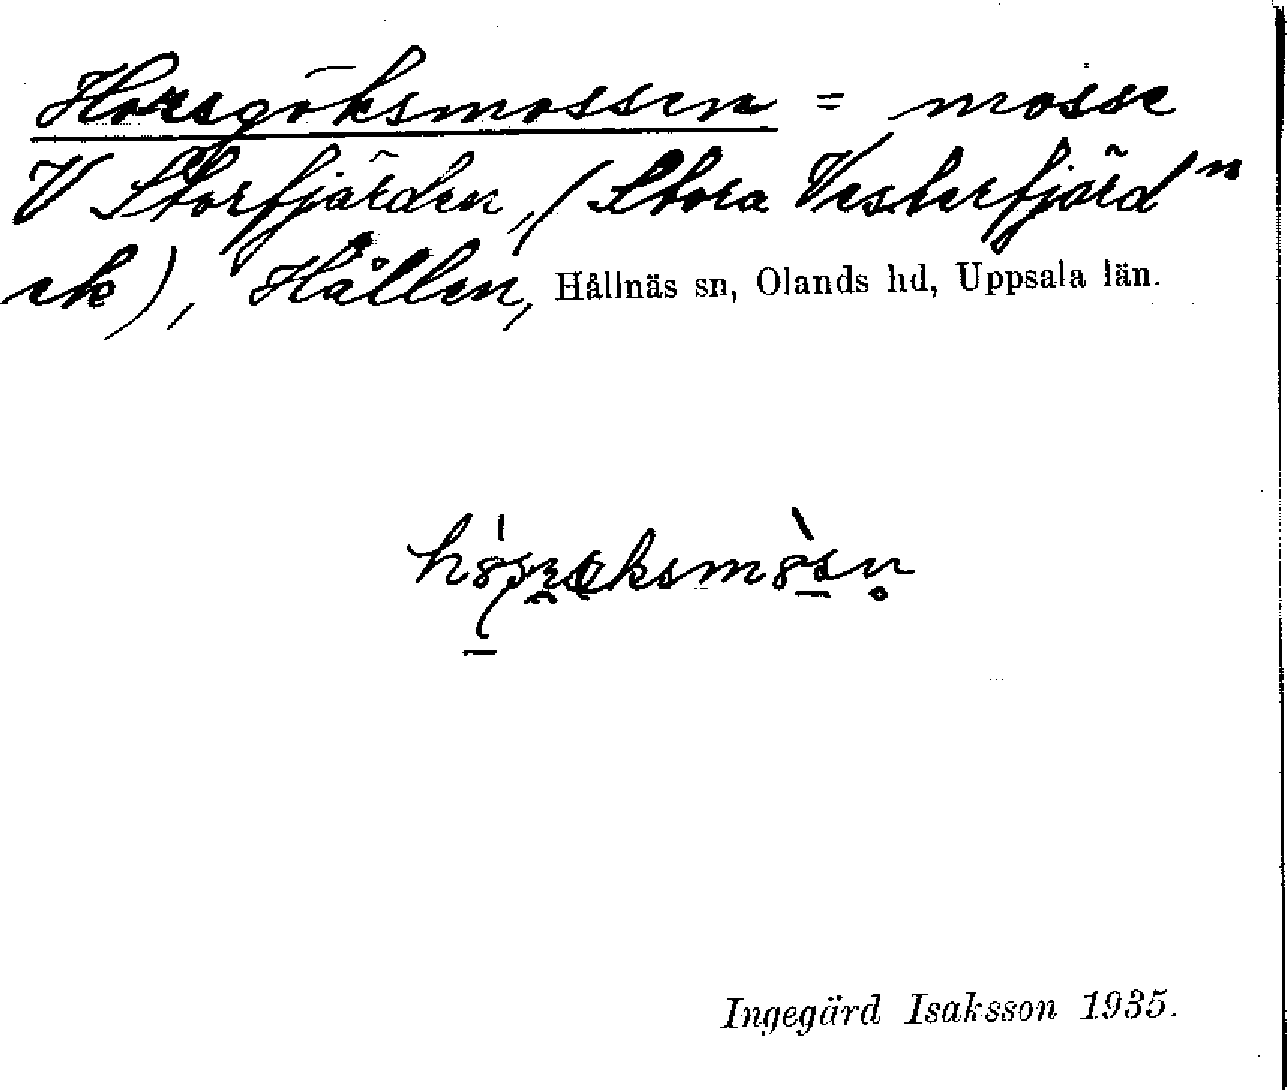 Horsgöksmossen = mosse
V Storfjärden, (Stora Vesterfjärdⁿ
ek), Hållen, Hållnäs sn, Olands hd, Uppsala län.
Ingegärd Isaksson 1935.